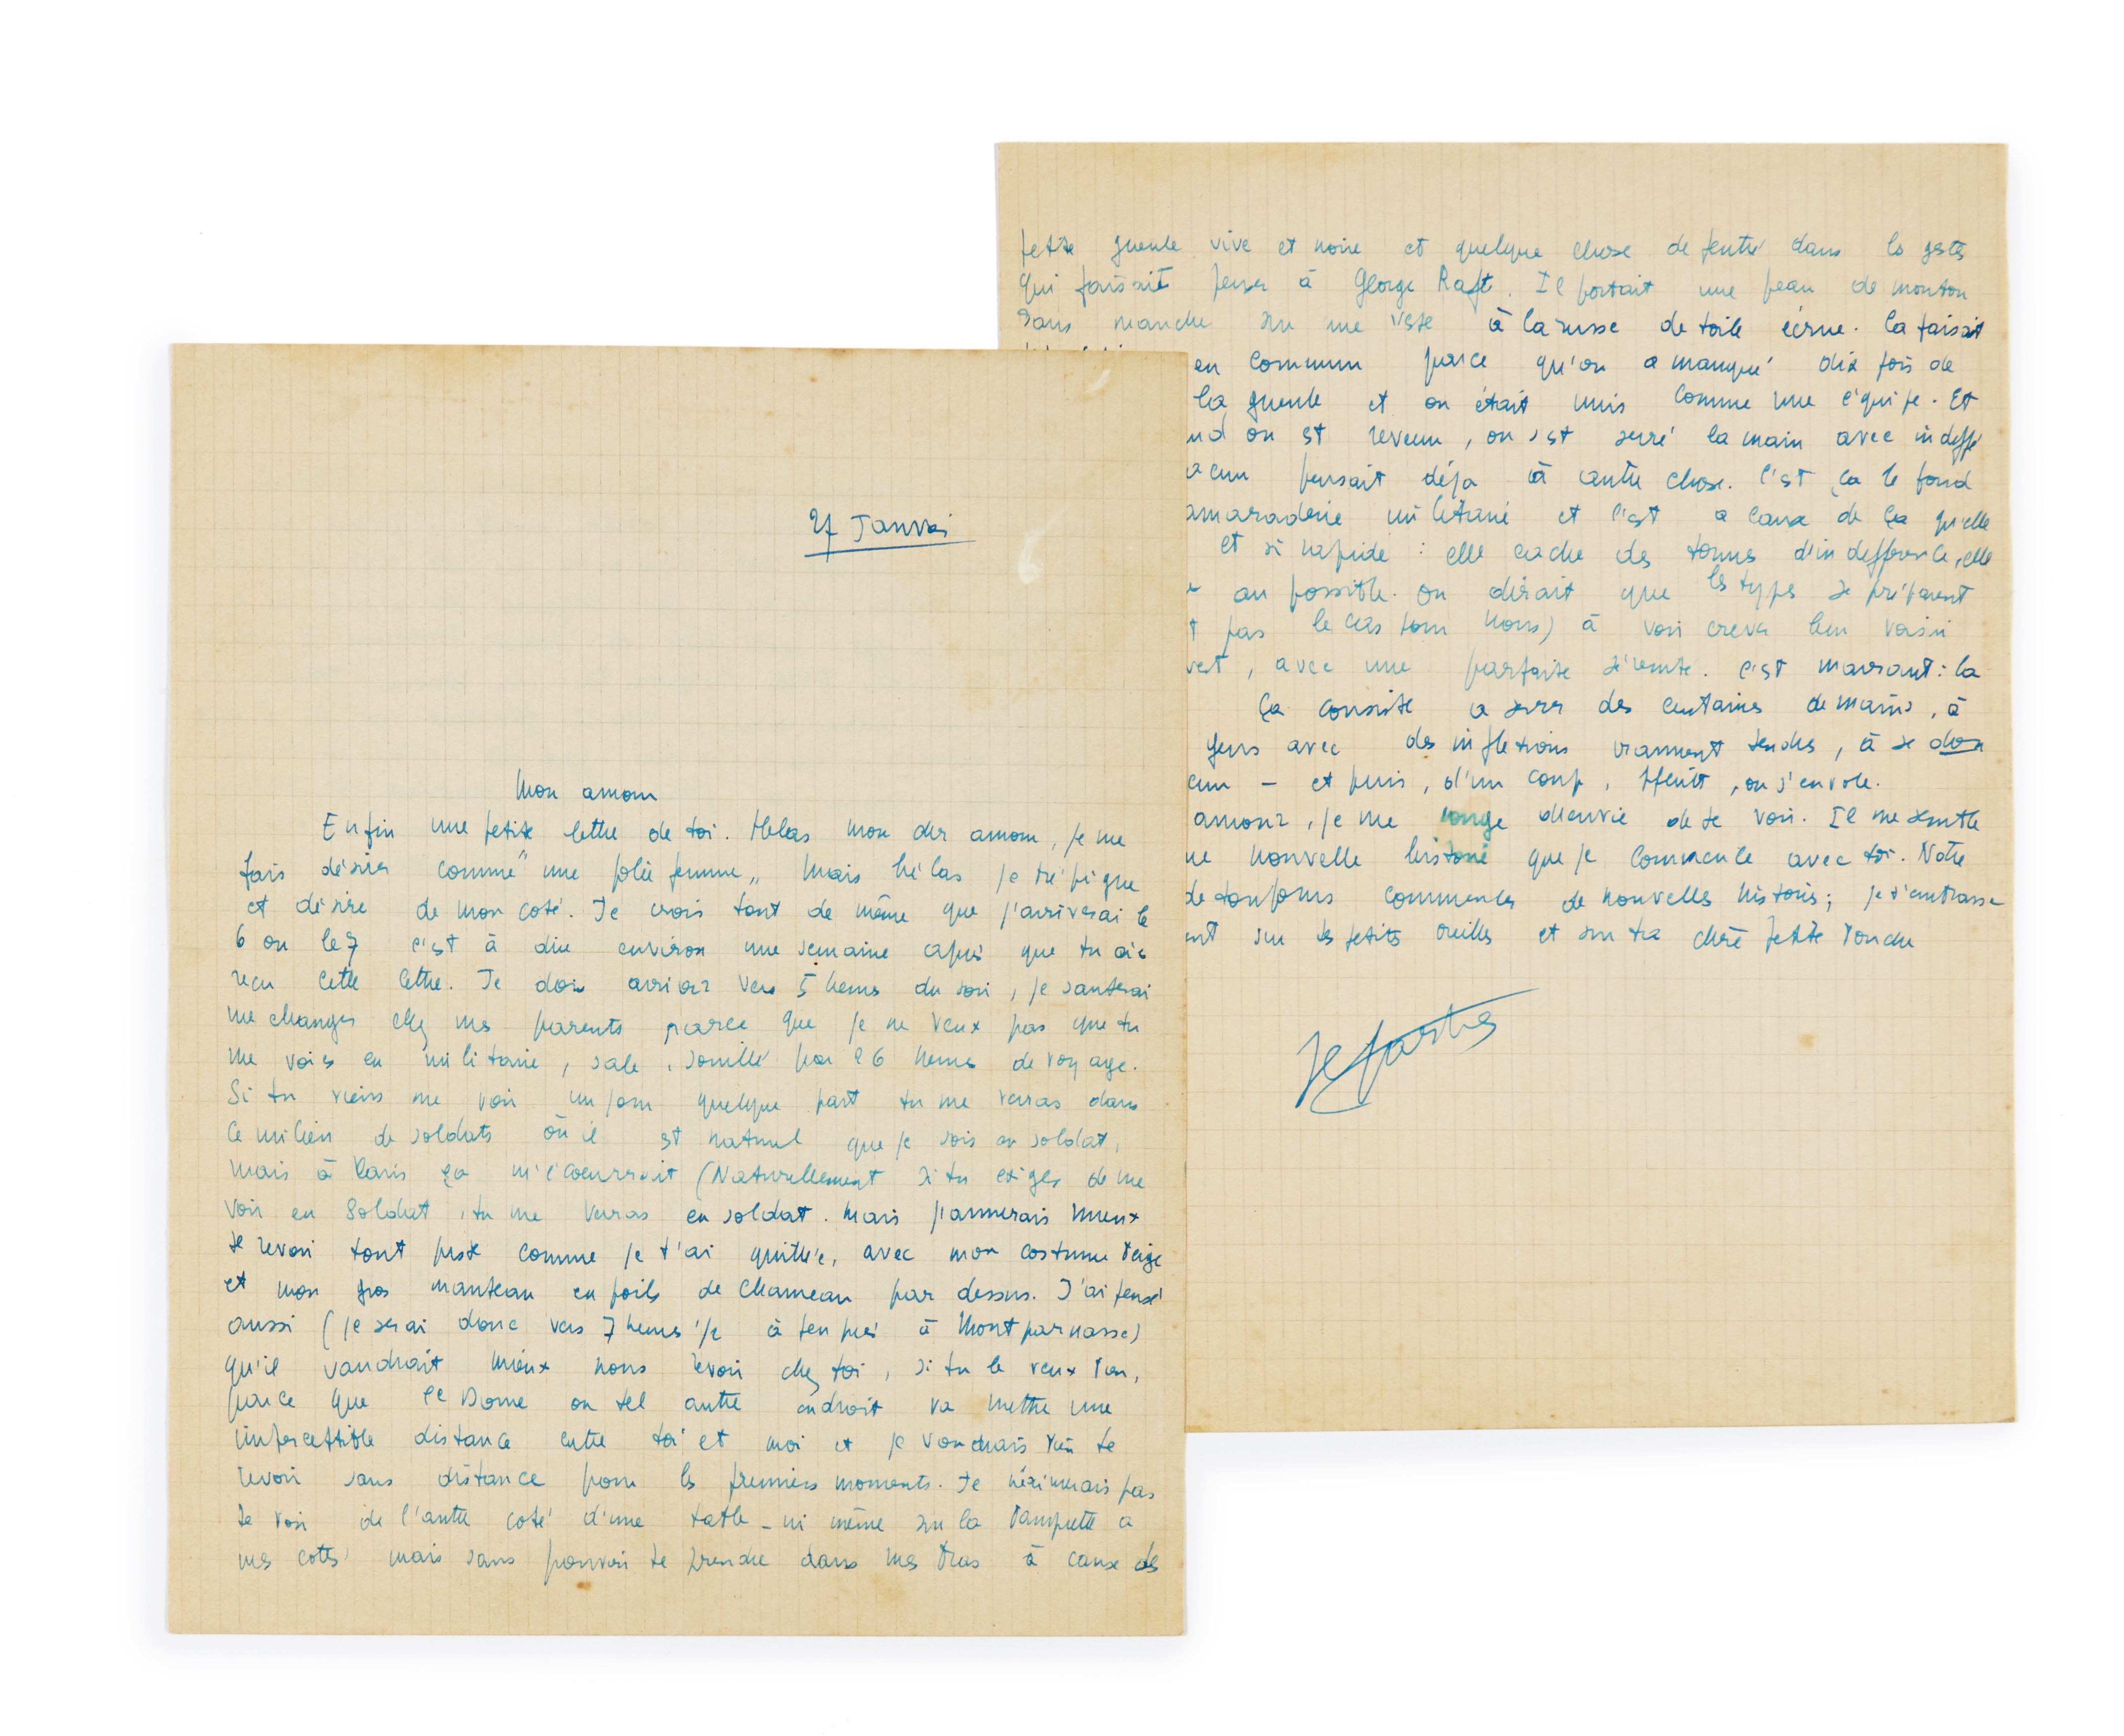 27 Janvier
Mon amour
Enfin une petite lettre de toi. Hélas mon cher amour, je me
fais désirer comme "une jolie femme" mais hélas je trépigne
et désire de mon coté. Je crois tout de même que j'arriverai le
6 ou le 7 c'est à dire environ une semaine après que tu aies
reçu cette lettre. Je dois arriver vers 5 heures du soir, je sauterai
me changer chez mes parents parce que je ne veux pas que tu
me voies en militaire, sale, souillé par 26 heures de voyage.
Si tu viens me voir un jour quelque part tu me verras dans
ce milieu de soldats où il est naturel que je sois en soldat,
mais à Paris ça m'écoeurerait (Naturellement si tu exiges de me
voir en soldat, tu me verras en soldat. Mais j'aimerais mieux
te revoir tout juste comme je t'ai quittée, avec mon costume beige
et mon gros manteau en poils de chameau par dessus. J'ai pensé
aussi (je serai donc vers 7 heures ½ à peu près à Montparnasse)
qu'il vaudrait mieux nous revoir chez toi, si tu le veux bien,
parce que le Dome ou tel autre endroit va mettre une
imperceptible distance entre toi et moi et je voudrais bien te
revoir sans distance pour les premiers moments. Je n'aimerais pas
te voir de l'autre coté d'une table - ni même sur la banquette a
mes cotés mais sans pouvoir te prendre dans mes bras à cause des
petite gueule vive et noire et quelque chose de feutré dans les gestes
qui faisait penser à George Raft. Il portait une peau de mouton
sans manche sur une veste à la russe de toile écrue. Ca faisait
en commun parce qu'on a manqué dix fois de
la gueule et on était unis comme une équipe. Et
nd on est revenu, on s'est serré la main avec indiffé
acun pensait déja à autre chose. C'est ça le fond
amaraderie militaire et c'est a cause de ça qu'elle
et si rapide : elle cache des tonnes d'indefférence, elle
au possible. On dirait que les types se préparent
t pas le cas pour nous) à voir crever leur voisin
vert, avec une parfaite sérénité. C'est marrant : la
Ça consiste a serrer des centaines de mains, à
gens avec des inflexions vraiment tendres, à se don
cun - et puis, d'un coup, pfuitt, on s'envole.
amour, je me ronge d'envie de te voir. Il me semble
ne nouvelle histoire que je commence avec toi. Notre
de toujours commencer de nouvelles histoires ; je t'embrasse
ent sur tes petits oreilles et sur ta chère petite bouche
JPSartre